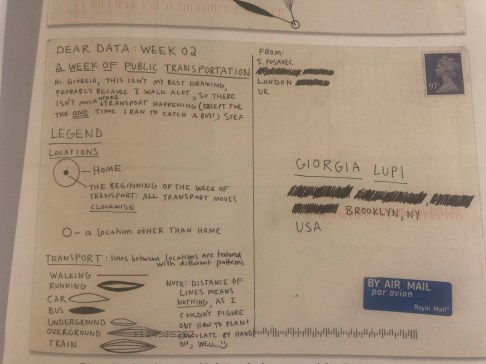 DEAR DATA: WEEK 02
A WEEK OF PUBLIC TRANSPORTATION
HI GIORGIA, THIS ISN'T MY BEST DRAWING,
PROBABLY BECAUSE I WALK ALOT, SO THERE
ISN'T MUCH OTHER TRANSPORT HAPPENING (EXCEPT FOR
THE ONE TIME I RAN TO CATCH A BUS) STEF
LEGEND
LOCATIONS
HOME
THE BEGINNING OF THE WEEK OF
TRANSPORT: ALL TRANSPORT MOVES
CLOCKWISE
a LOCATION OTHER THAN HOME
TRANSPORT: lines between locations are textured
with different patterns
WALKING
RUNNING
CAR
BUS
UNDERGROUND
OVERGROUND
TRAIN
NOTE: DISTANCE OF
LINES MEANS
NOTHING, AS I
COULDN'T FIGURE
OUT HOW TO PLAN &
CALCULATE BY HAND
OH, WELL
FROM:
S. POSAVEC
LONDON
UK
GIORGIA LUPI
BROOKLYN, NY
USA
BY AIR MAIL
par avion
Royal Mail